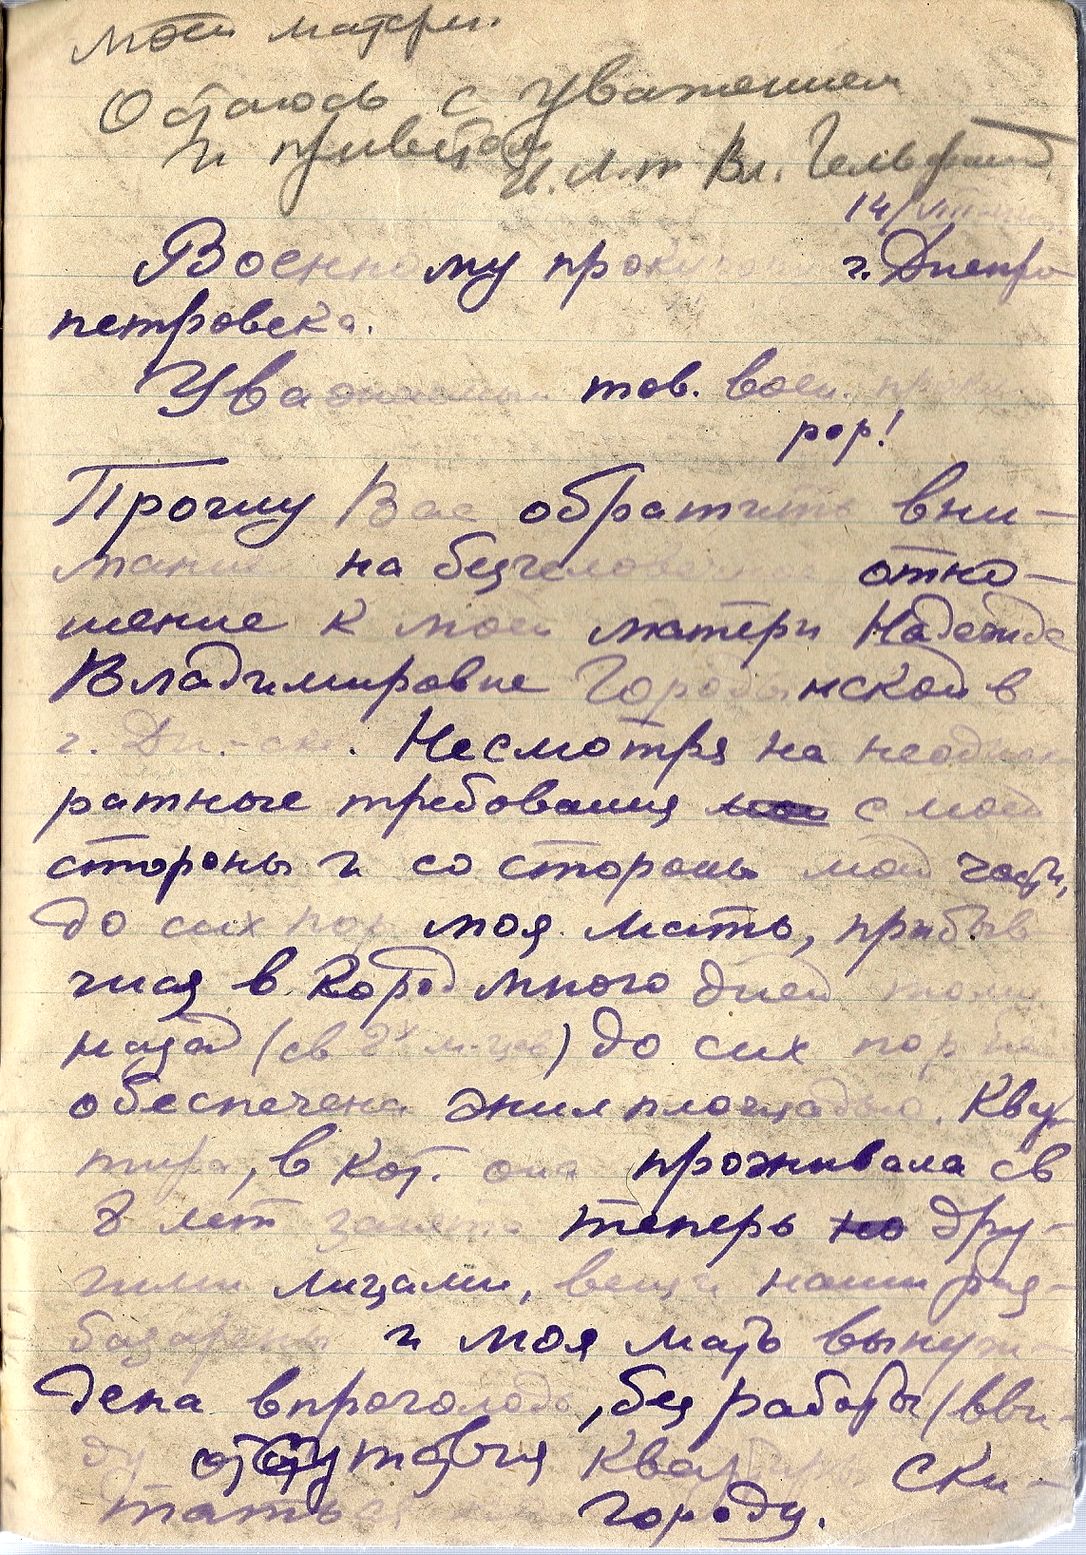 моей матери.
Остаюсь с уважением
и приветом
Л-т Вл. Гельфанд
14/VIII
Военному прокурору г. Днепро
петровска.
Уважаемый тов. воен. проку
рор!
Прошу Вас обратить вни-
мание на безчеловечное отно-
шение к моей матери Надежде
Владимировне Городынской в
г. Дн.-ске. Несмотря на неоднок
ратные требования с моей
стороны и со стороны моей части,
до сих пор моя мать, прибыв
чися в город много дней тому
назад (св 2х м-цев) до сих пор не
обеспечена жилплощадью. Квар
тира, в кот. она проживала св
8 лет занята теперь дру-
гими лицами, вещи наши раз-
базарены и моя мать вынуж-
дена впроголодь, без работы (вви-
ду отсутствия квартиры скит-
таться по городу.